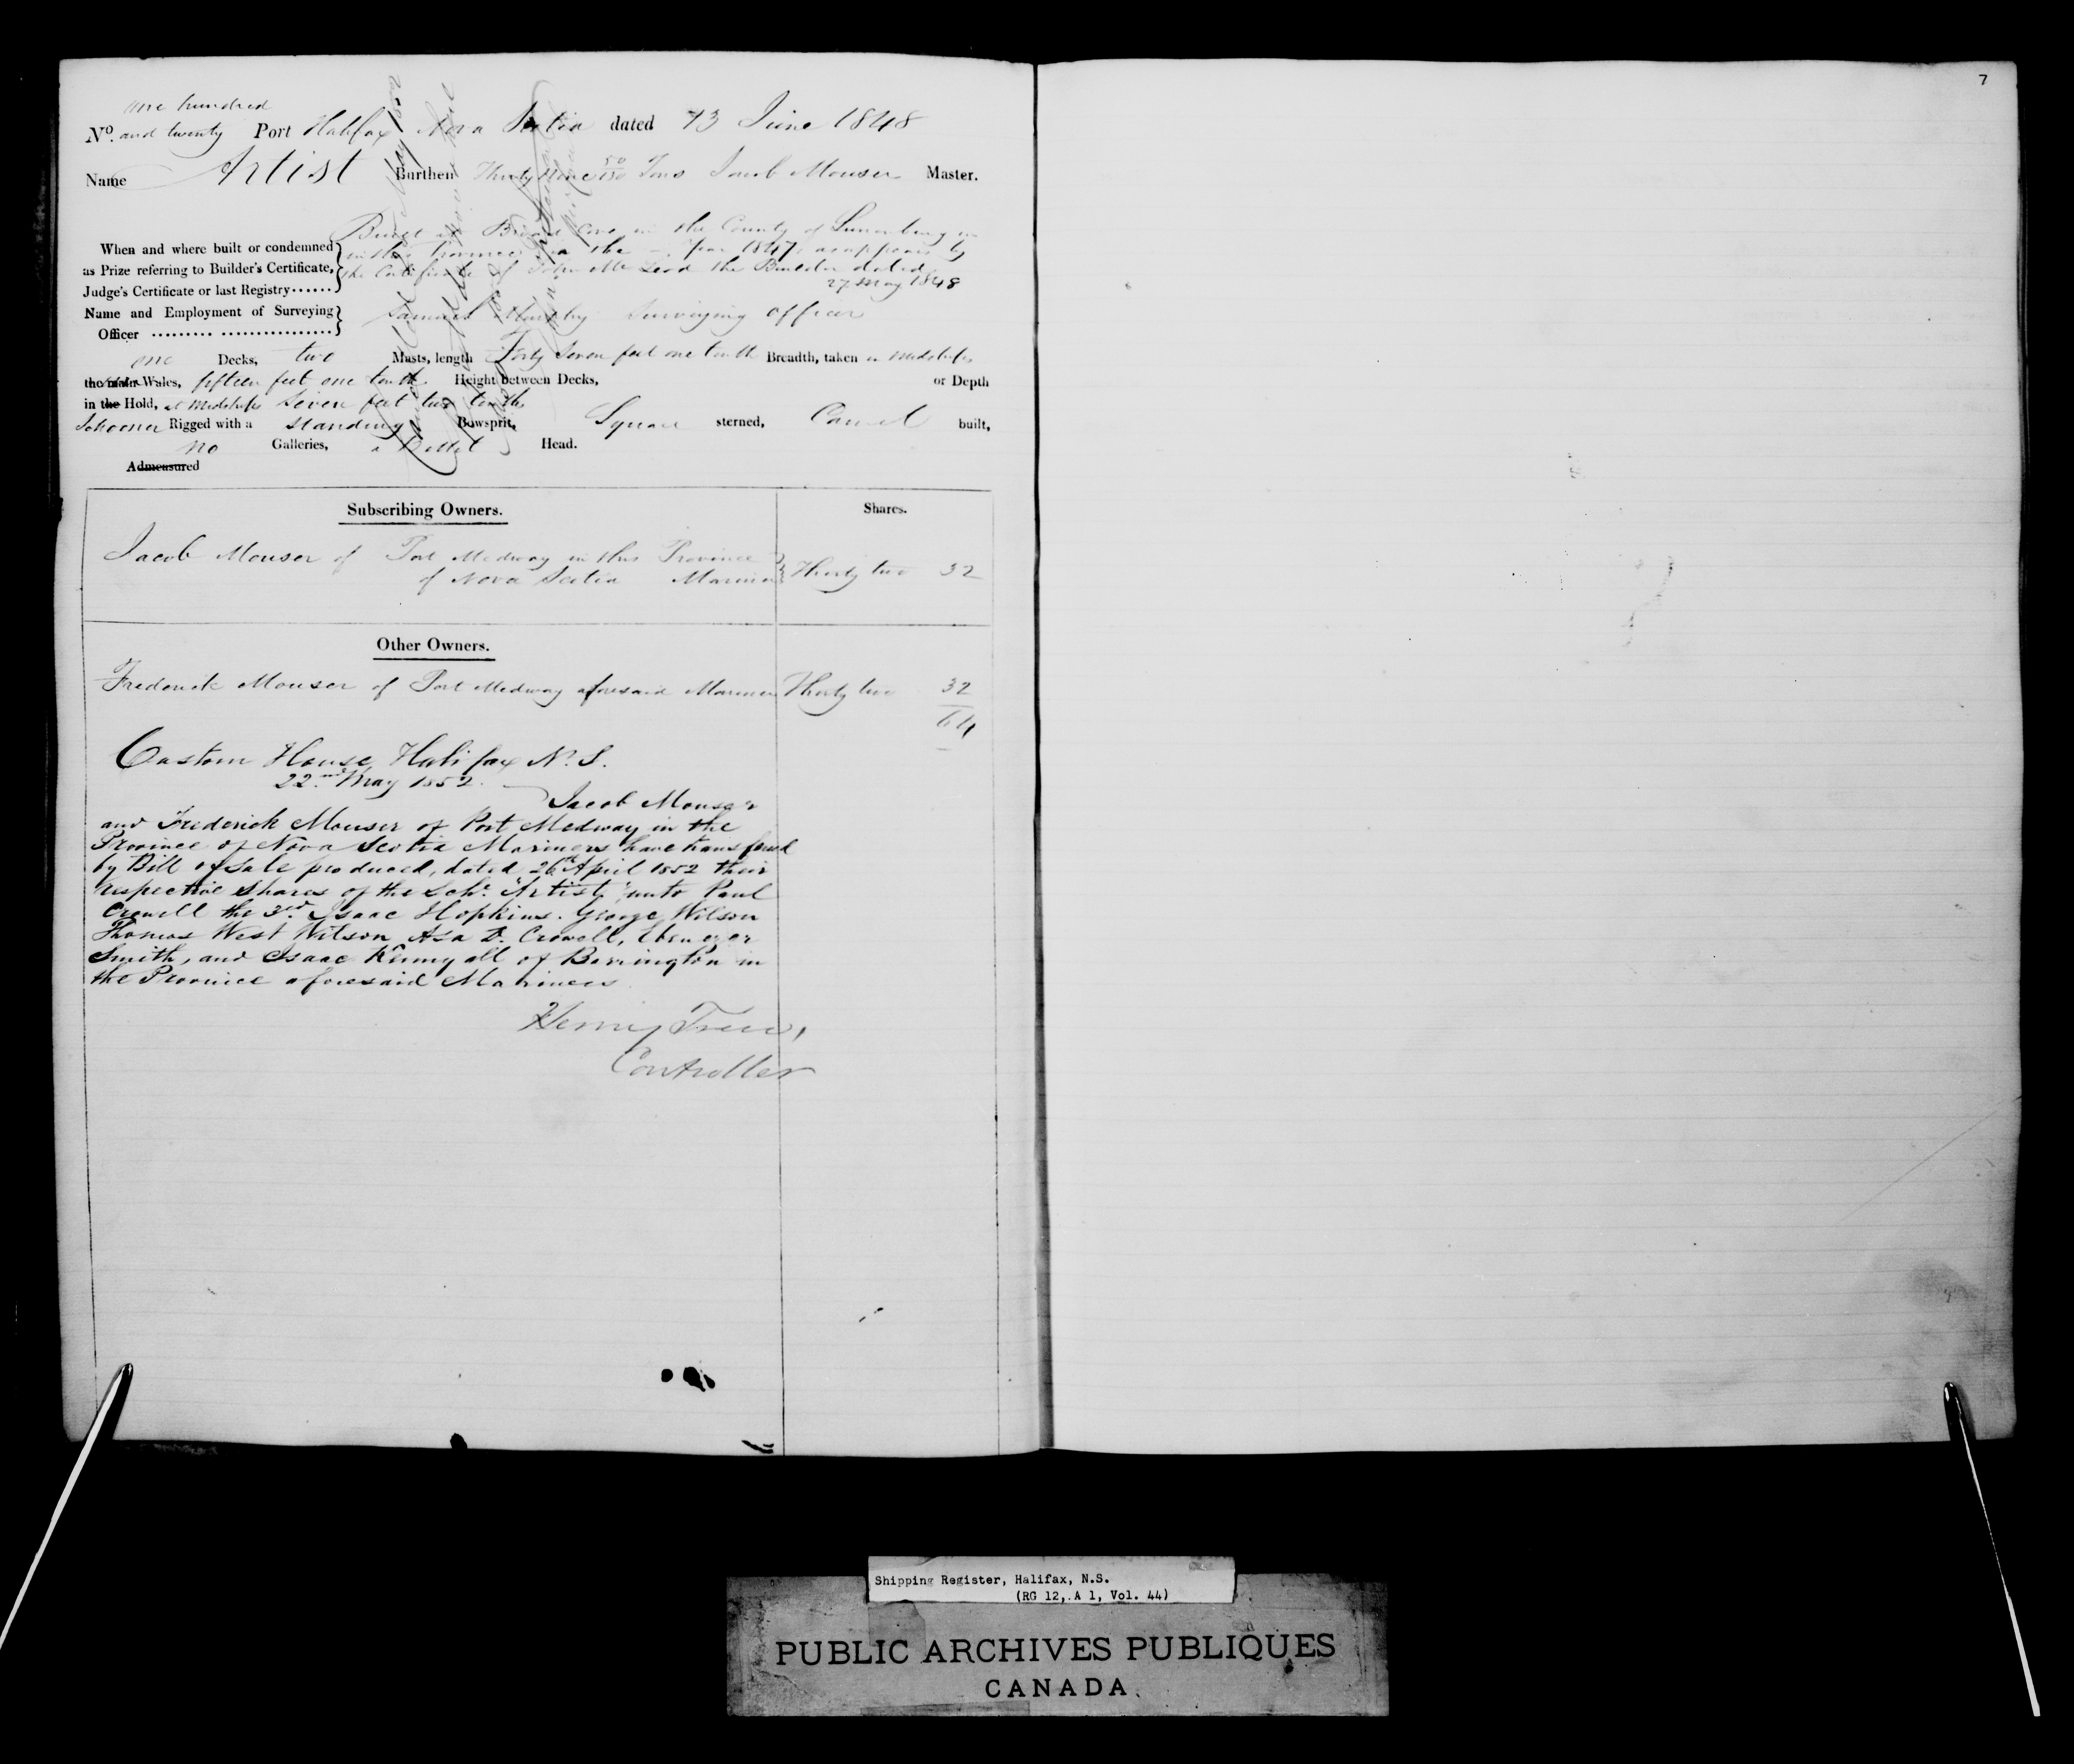 7
one hundred
No. and twenty Port Halifax Nova Scotia dated 13 June 1848
Name Artist Burthen Thirty Nine 50/130 Tons Jacob Mouser Master.
Built at Broad Cove in the County of Lunenburg in
When and where built or condemned in the Province in the year 1847, as appears by
as Prize referring to Builder's Certificate, the Certificate of John McLeod the Builder dated
Judge's Certificate or last Registry...... 27 May 1848
Name and Employment of Surveying Samuel Murphy Surveying officer
Officer ......... ................
one Decks, two Masts, length Forty Seven feet one tenth Breadth, taken in Midships
the main Wales, fifteen feet one tenth Height between Decks, or Depth
in the Hold, at Midships Seven feet two tenths
Schooner Rigged with a standing Bowsprit, Square sterned, Carvel built,
no Galleries, a Billet Head.
Admeasured
Subscribing Owners. Shares.
Jacob Mouser of Port Medway in this Province
of Nova Scotia Mariner Thirty two 32
Other Owners.
Frederick Mouser of Port Medway aforesaid Mariner Thirty two 32
64
Custom House, Halifax N.S.
22nd May 1852.
Jacob Mouser
and Frederick Mouser of Port Medway in the
Province of Nova Scotia Mariners have transferred
by Bill of Sale produced, dated 26th April 1852 their
respective shares of the Schr. "Artist," unto Paul
Crowell the 3rd. Isaac Hopkins. George Wilson
Thomas West Wilson, Asa D. Crowell, Ebenezer
Smith, and Isaac Kenny all of Barrington in
the Province aforesaid Mariners
Henry Trew,
Controller
Shipping Register, Halifax, N.S.
(RG 12, A 1, Vol. 44)
PUBLIC ARCHIVES PUBLIQUES
CANADA